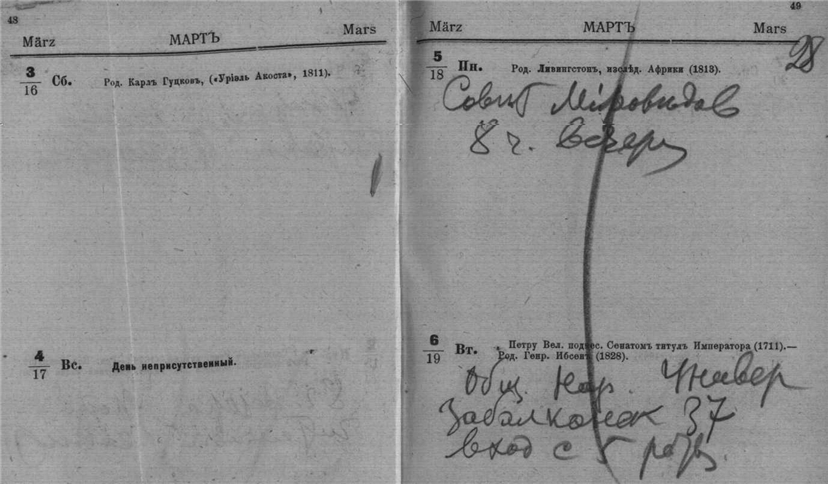 48
März МАРТЪ Mars
3/16 Сб. Род. Карлъ Гуцковъ, («Уріэль Акоста», 1811).
4/17 Вс. День неприсутственный.
49
März МАРТЪ Mars
28
5/18 Пн. Род. Ливингстонъ, изслѣд. Африки (1813).
Совѣт Міроведов
8 ч. вечера
6/19 Вт. Петру Вел. поднес. Сенатомъ титулъ Императора (1711).—
Род. Генр. Ибсенъ (1828).
Общ Нар. Универ
Забалканск 37
вход с 5 роты